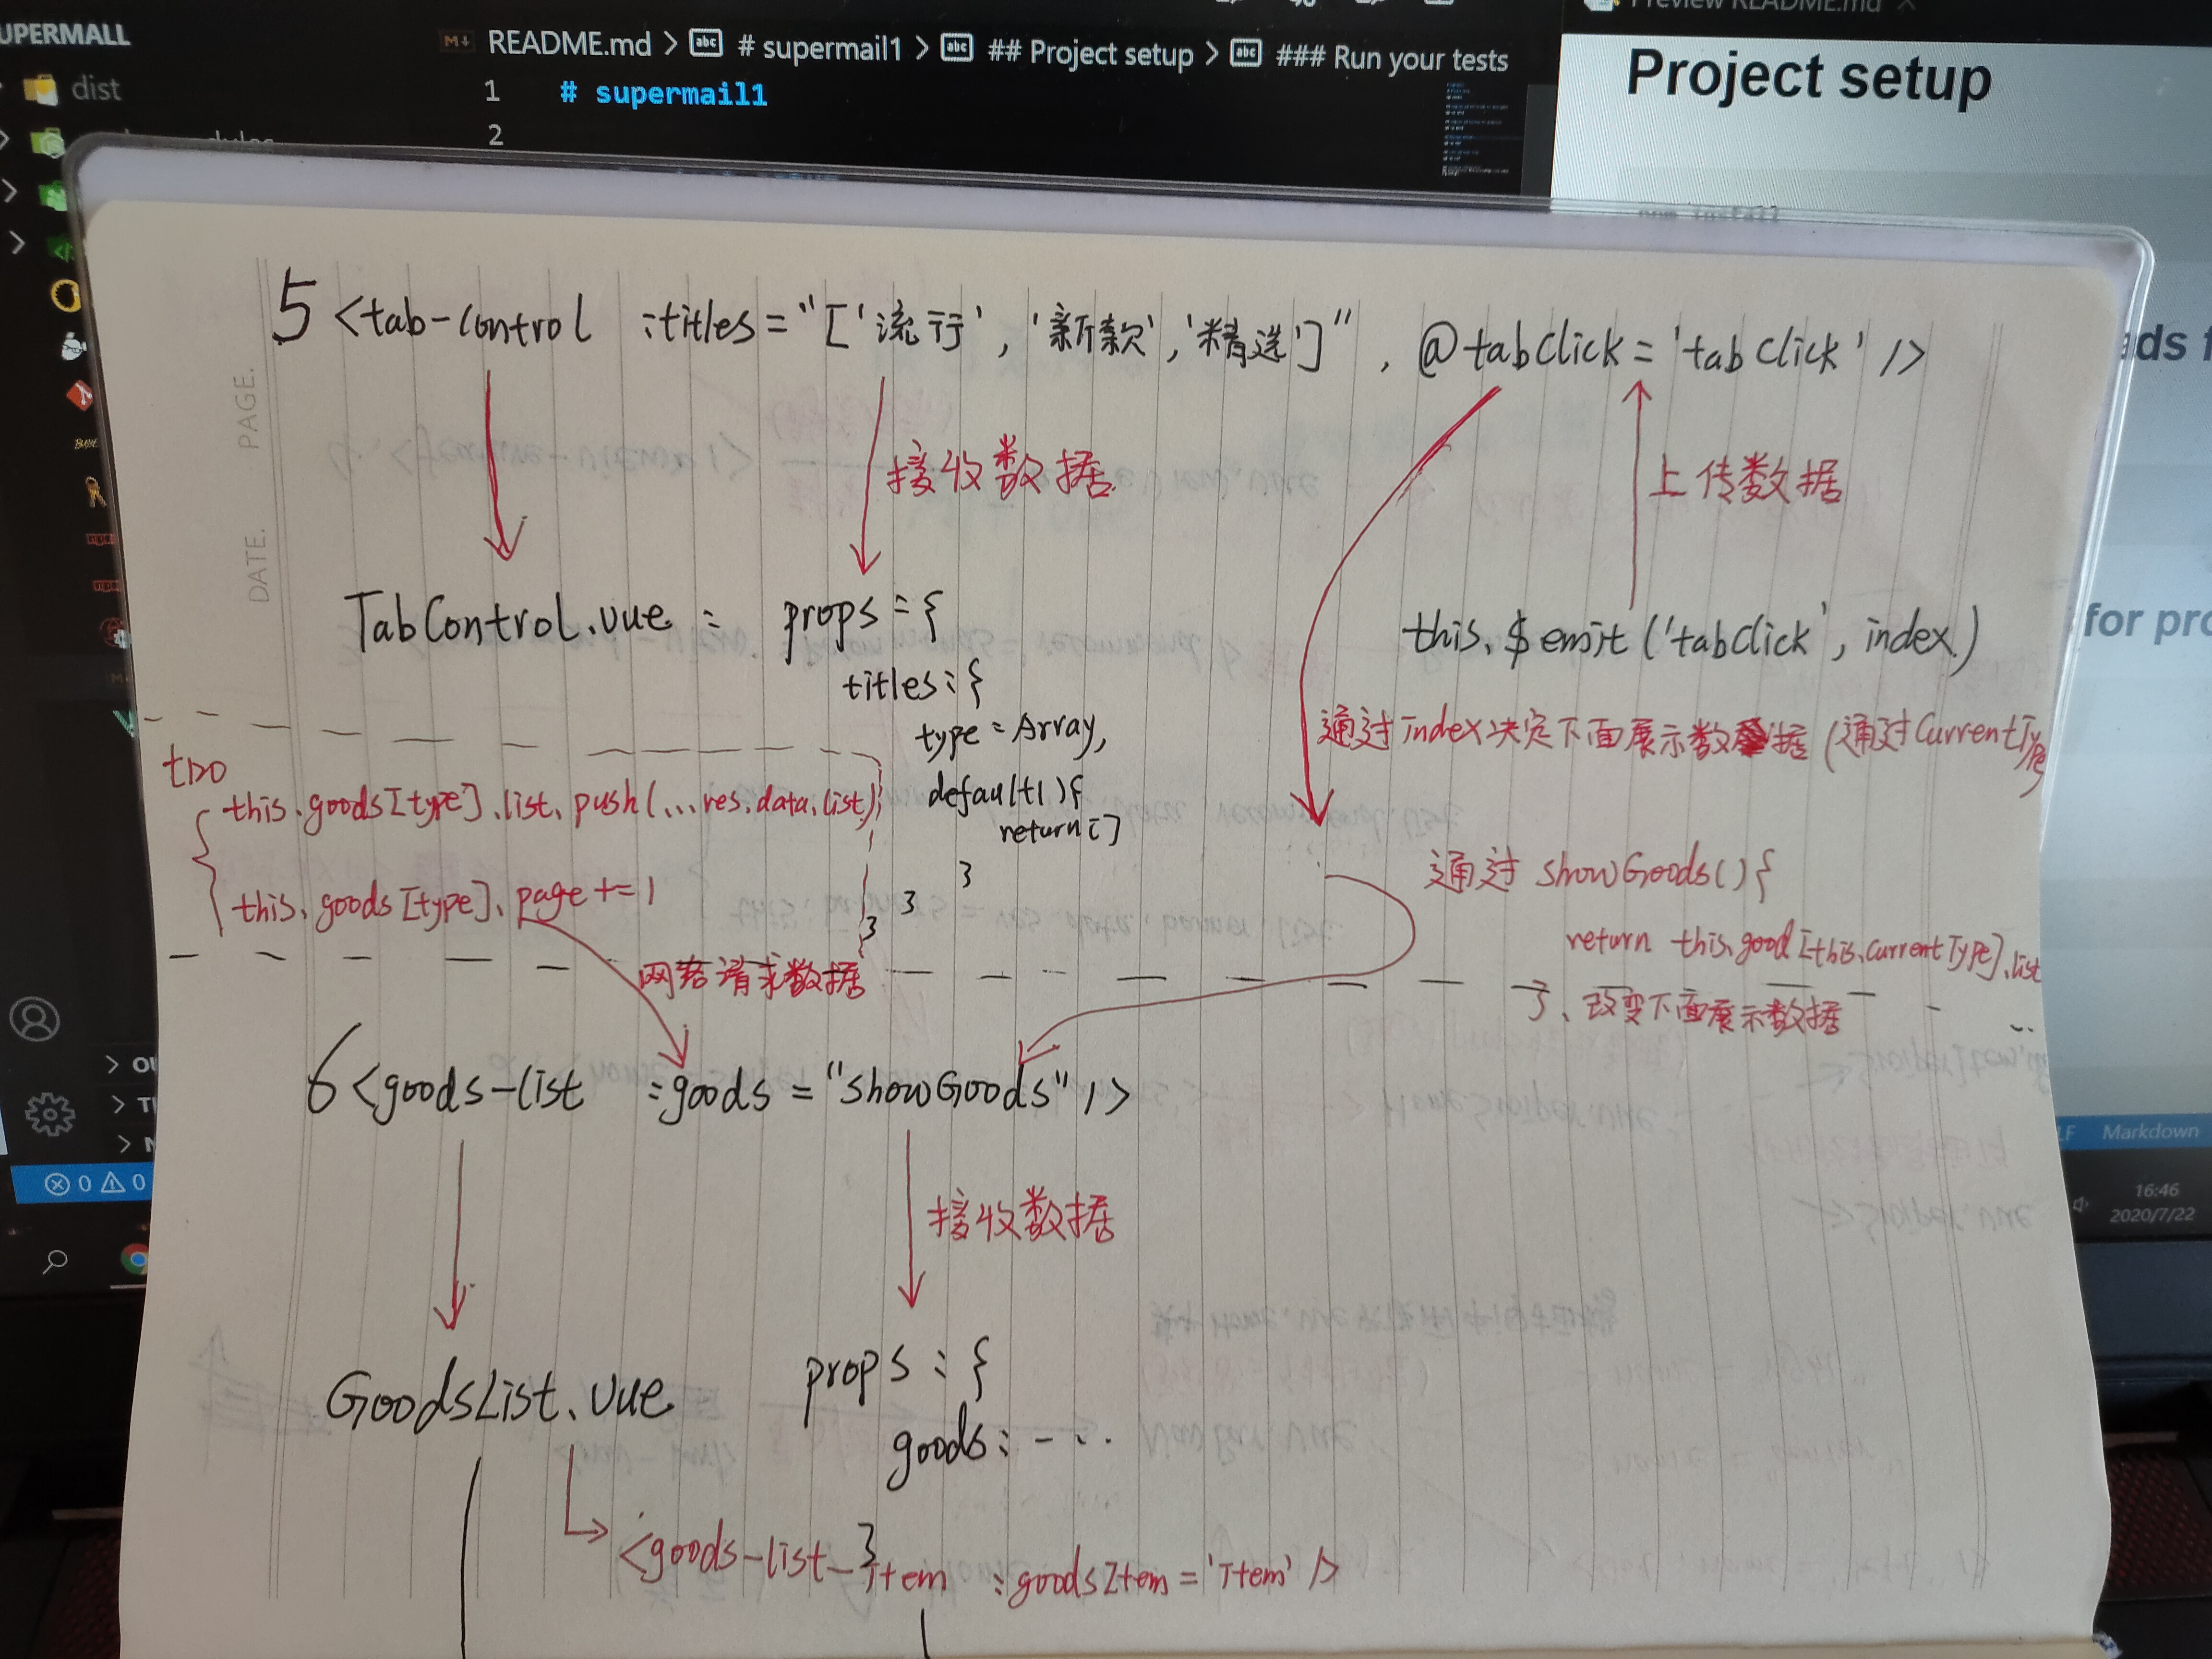 UPERMALL
dist
README.md > # supermail1 > ## Project setup > ### Run your tests
1 # supermail1
2
Preview README.md
Project setup
npm install
ds f
for pro
PAGE.
DATE.
5 <tab-control :titles="['流行', '新款', '精选']", @tabClick='tabClick' />
接收数据
上传数据
TabControl.vue : props = {
titles : {
type = Array,
default() {
return []
}
}
}
this.$emit('tabClick', index)
通过index决定下面展示数据(通过CurrentType
this.goods[type].list.push(...res.data.list);
this.goods[type].page += 1
网络请求数据
通过 showGoods() {
return this.good[this.currentType].list
}、改变下面展示数据
6 <goods-list :goods = "showGoods" />
接收数据
GoodsList.vue props : {
goods : - ...
}
<goods-list-Item :goodsItem = 'Item' />
OU
0 0
Markdown
16:46
2020/7/22